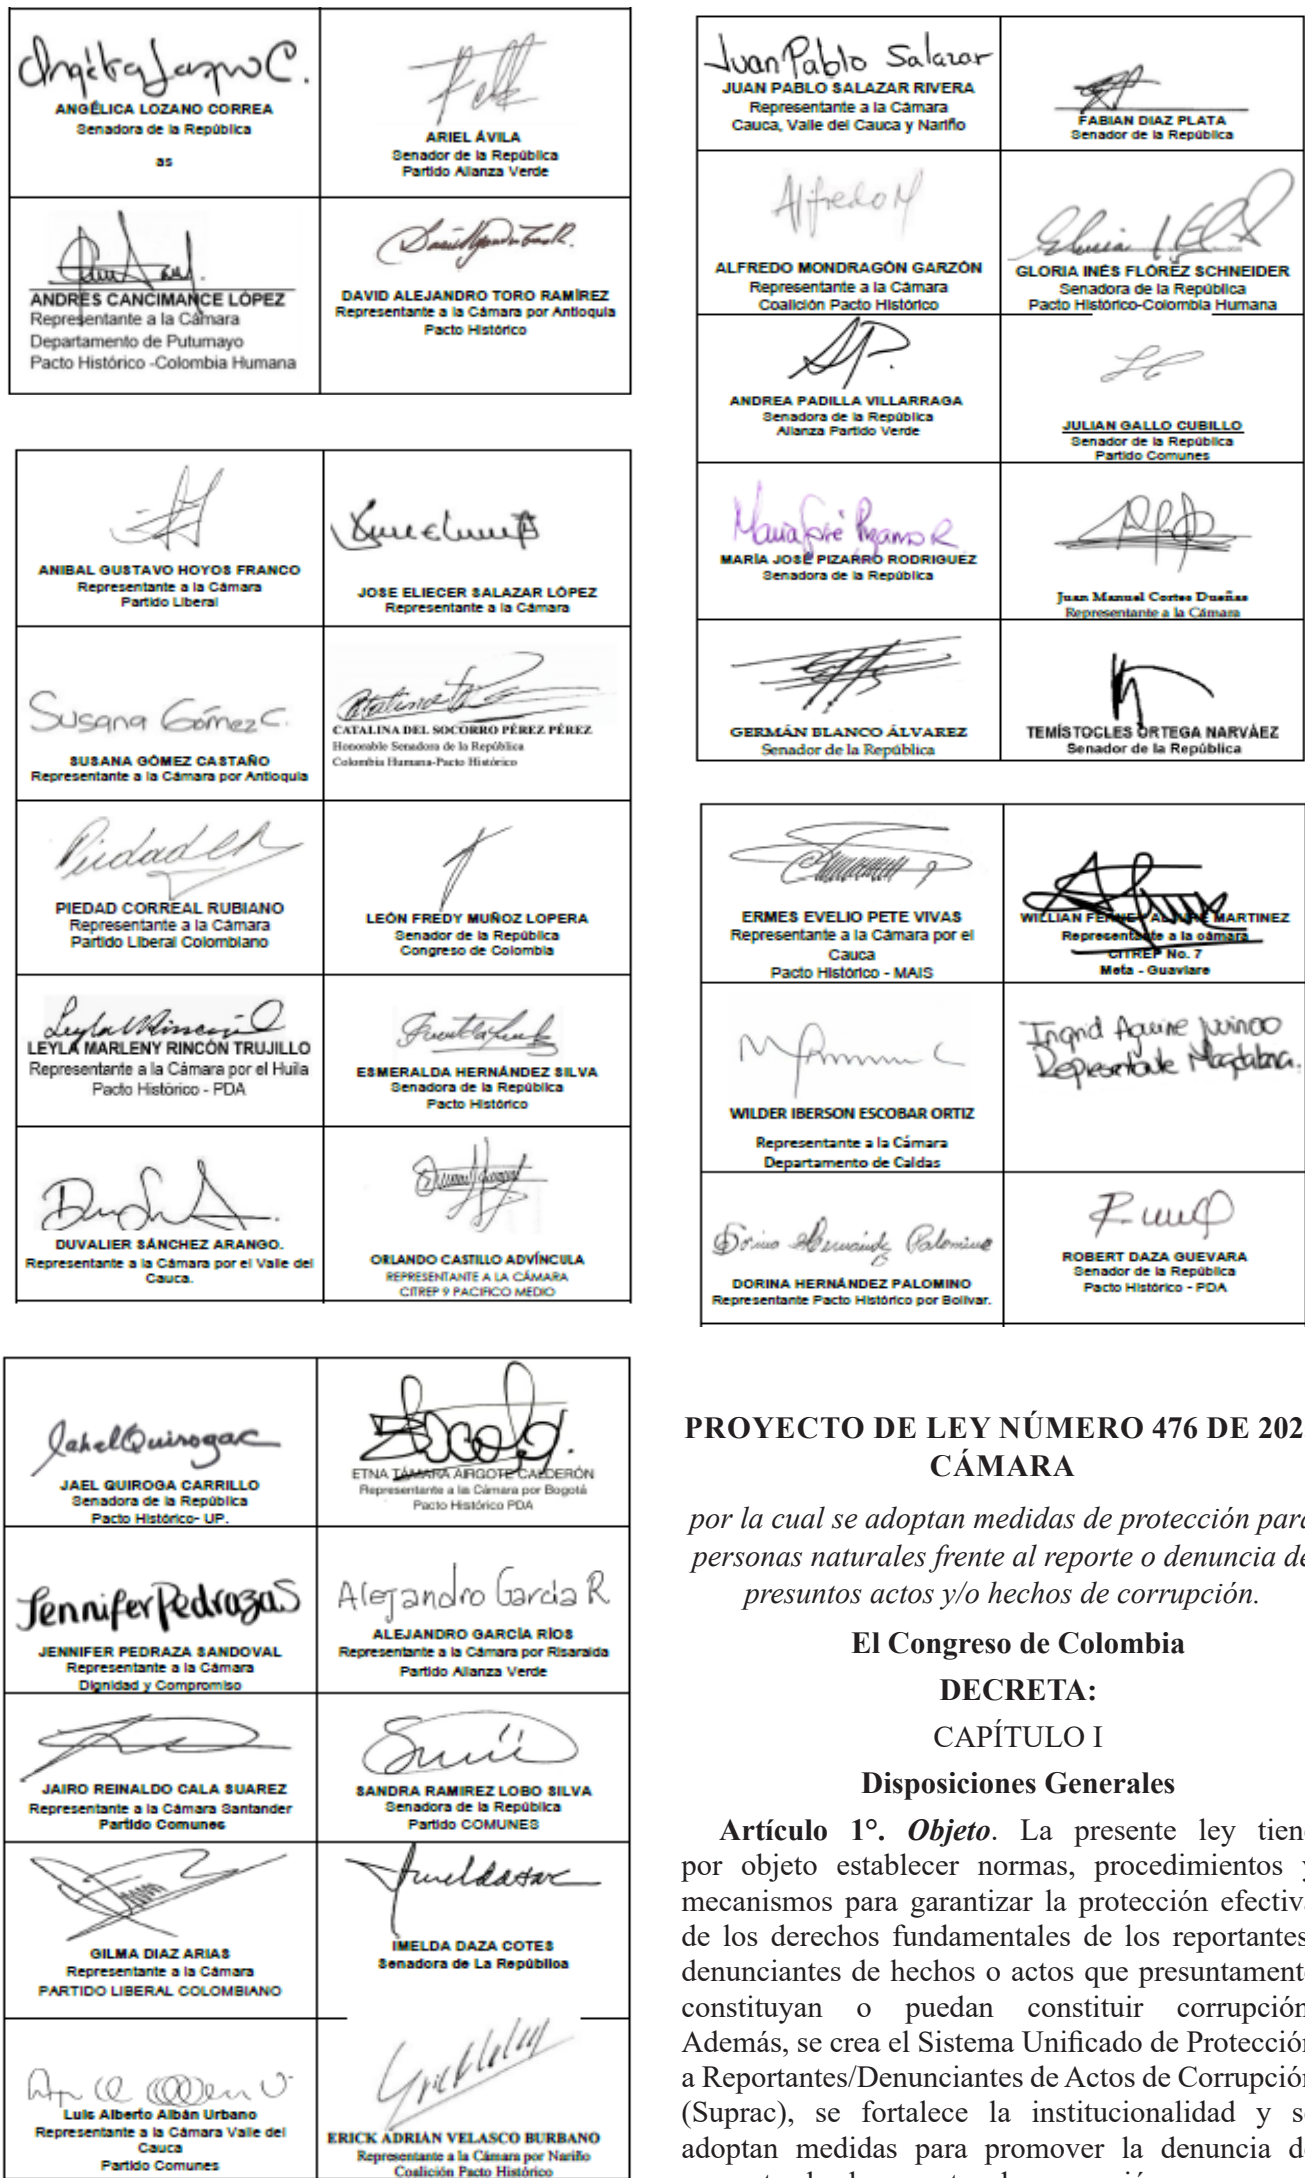 Angélica Lozano C.
ANGÉLICA LOZANO CORREA
Senadora de la República
as
ARIEL ÁVILA
Senador de la República
Partido Alianza Verde
ANDRES CANCIMANCE LÓPEZ
Representante a la Cámara
Departamento de Putumayo
Pacto Histórico -Colombia Humana
DAVID ALEJANDRO TORO RAMÍREZ
Representante a la Cámara por Antioquia
Pacto Histórico
ANIBAL GUSTAVO HOYOS FRANCO
Representante a la Cámara
Partido Liberal
JOSE ELIECER SALAZAR LÓPEZ
Representante a la Cámara
Susana Gómez C.
SUSANA GÓMEZ CASTAÑO
Representante a la Cámara por Antioquia
CATALINA DEL SOCORRO PÉREZ PÉREZ
Honorable Senadora de la República
Colombia Humana-Pacto Histórico
PIEDAD CORREAL RUBIANO
Representante a la Cámara
Partido Liberal Colombiano
LEÓN FREDY MUÑOZ LOPERA
Senador de la República
Congreso de Colombia
LEYLA MARLENY RINCÓN TRUJILLO
Representante a la Cámara por el Huila
Pacto Histórico - PDA
ESMERALDA HERNÁNDEZ SILVA
Senadora de la República
Pacto Histórico
DUVALIER SÁNCHEZ ARANGO.
Representante a la Cámara por el Valle del
Cauca.
ORLANDO CASTILLO ADVÍNCULA
REPRESENTANTE A LA CÁMARA
CITREP 9 PACIFICO MEDIO
Jahel Quiroga C
JAEL QUIROGA CARRILLO
Senadora de la República
Pacto Histórico- UP.
ETNA TÁMARA ARGOTE CALDERÓN
Representante a las Cámara por Bogotá
Pacto Histórico PDA
Jennifer Pedraza S
JENNIFER PEDRAZA SANDOVAL
Representante a la Cámara
Dignidad y Compromiso
Alejandro García R
ALEJANDRO GARCÍA RÍOS
Representante a la Cámara por Risaralda
Partido Alianza Verde
JAIRO REINALDO CALA SUAREZ
Representante a la Cámara Santander
Partido Comunes
SANDRA RAMIREZ LOBO SILVA
Senadora de la República
Partido COMUNES
GILMA DIAZ ARIAS
Representante a la Cámara
PARTIDO LIBERAL COLOMBIANO
IMELDA DAZA COTES
Senadora de La República
Luis Alberto Albán Urbano
Representante a la Cámara Valle del
Cauca
Partido Comunes
ERICK ADRIÁN VELASCO BURBANO
Representante a la Cámara por Nariño
Coalición Pacto Histórico
Juan Pablo Salazar
JUAN PABLO SALAZAR RIVERA
Representante a la Cámara
Cauca, Valle del Cauca y Nariño
FABIAN DIAZ PLATA
Senador de la República
Alfredo M
ALFREDO MONDRAGÓN GARZÓN
Representante a la Cámara
Coalición Pacto Histórico
GLORIA INÉS FLÓREZ SCHNEIDER
Senadora de la República
Pacto Histórico-Colombia Humana
ANDREA PADILLA VILLARRAGA
Senadora de la República
Alianza Partido Verde
JULIAN GALLO CUBILLO
Senador de la República
Partido Comunes
María José Pizarro R
MARÍA JOSÉ PIZARRO RODRIGUEZ
Senadora de la República
Juan Manuel Cortes Dueñas
Representante a la Cámara
GERMÁN BLANCO ÁLVAREZ
Senador de la República
TEMÍSTOCLES ORTEGA NARVÁEZ
Senador de la República
ERMES EVELIO PETE VIVAS
Representante a la Cámara por el
Cauca
Pacto Histórico - MAIS
WILLIAN FERNEY ALJURE MARTINEZ
Representante a la cámara
CITREP No. 7
Meta - Guaviare
WILDER IBERSON ESCOBAR ORTIZ
Representante a la Cámara
Departamento de Caldas
Ingrid Aguirre Juvinao
Representante Magdalena.
Dorina Hernández Palomino
DORINA HERNÁNDEZ PALOMINO
Representante Pacto Histórico por Bolívar.
ROBERT DAZA GUEVARA
Senador de la República
Pacto Histórico - PDA
PROYECTO DE LEY NÚMERO 476 DE 202
CÁMARA
por la cual se adoptan medidas de protección para
personas naturales frente al reporte o denuncia de
presuntos actos y/o hechos de corrupción.
El Congreso de Colombia
DECRETA:
CAPÍTULO I
Disposiciones Generales
Artículo 1°. Objeto. La presente ley tiene
por objeto establecer normas, procedimientos y
mecanismos para garantizar la protección efectiva
de los derechos fundamentales de los reportantes
denunciantes de hechos o actos que presuntamente
constituyan o puedan constituir corrupción
Además, se crea el Sistema Unificado de Protección
a Reportantes/Denunciantes de Actos de Corrupción
(Suprac), se fortalece la institucionalidad y se
adoptan medidas para promover la denuncia de